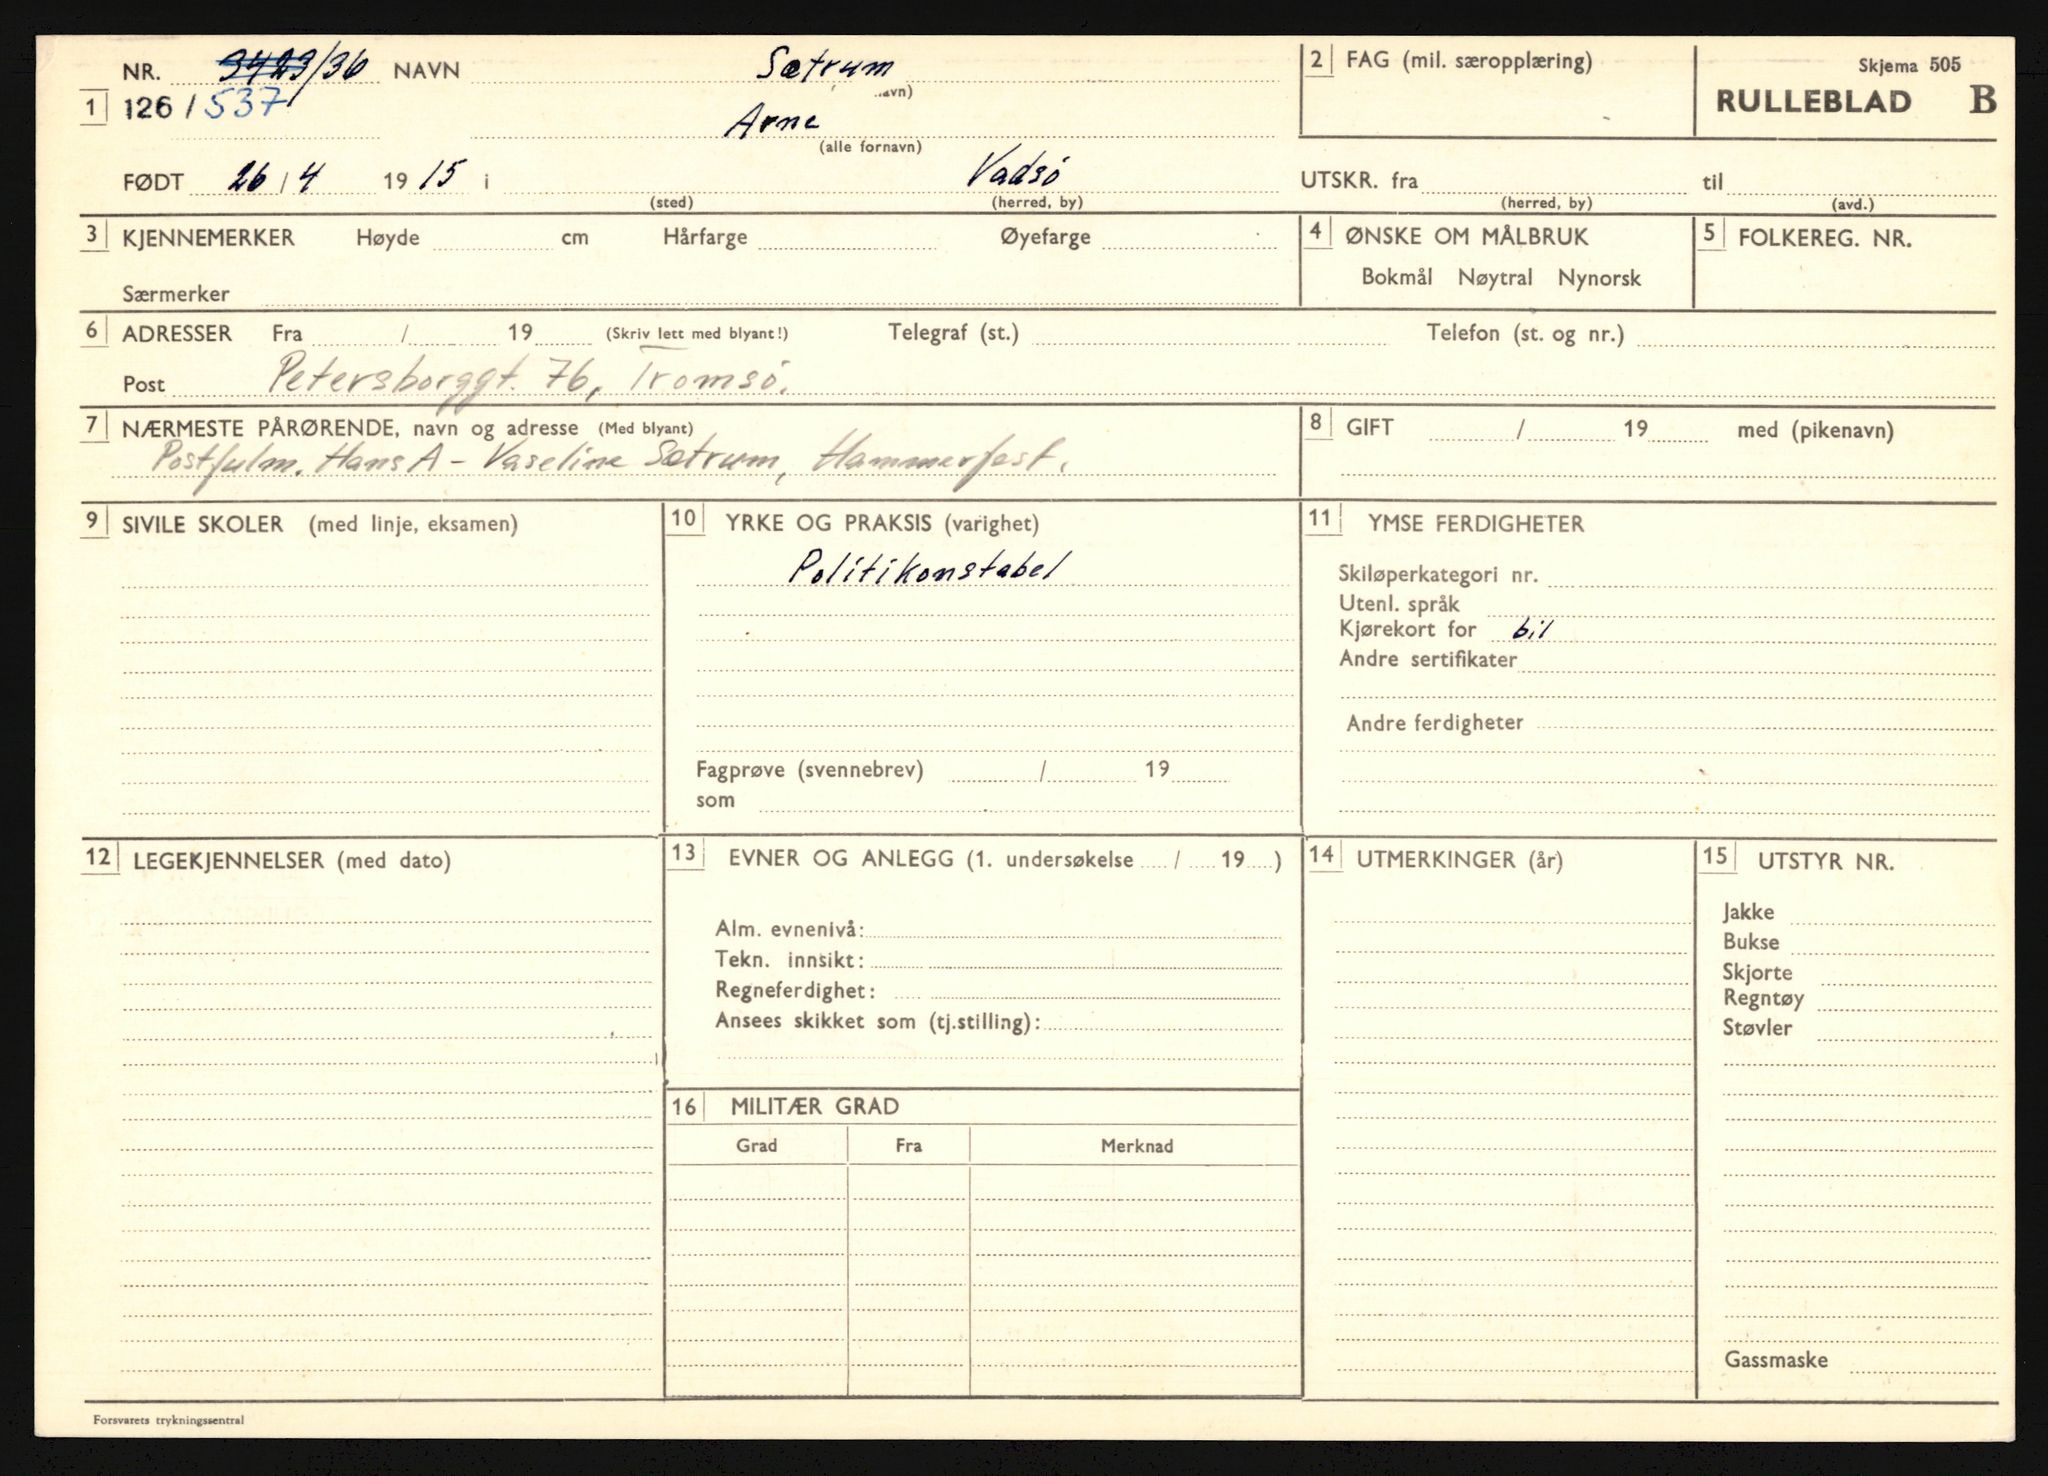 NR. 3423/36 NAVN Sætrum
1 126/537 avn)
Arne
(alle fornavn)
FØDT 26/4 1915 i Vadsö
(sted) (herred, by)
2 FAG (mil. særopplæring)
Skjema 505
RULLEBLAD B
UTSKR. fra til
(herred, by) (avd.)
3 KJENNEMERKER Høyde cm Hårfarge Øyefarge
Særmerker
4 ØNSKE OM MÅLBRUK
Bokmål Nøytral Nynorsk
5 FOLKEREG. NR.
6 ADRESSER Fra / 19 (Skriv lett med blyant!) Telegraf (st.) Telefon (st. og nr.)
Post Petersborggt. 76, Tromsö.
7 NÆRMESTE PÅRØRENDE, navn og adresse (Med blyant)
Postfulm. Hans A - Vaseline Sætrum, Hammerfest.
8 GIFT / 19 med (pikenavn)
9 SIVILE SKOLER (med linje, eksamen)
10 YRKE OG PRAKSIS (varighet)
Politikonstabel
Fagprøve (svennebrev) / 19
som
11 YMSE FERDIGHETER
Skiløperkategori nr.
Utenl. språk
Kjørekort for bil
Andre sertifikater
Andre ferdigheter
12 LEGEKJENNELSER (med dato)
13 EVNER OG ANLEGG (1. undersøkelse / 19 )
Alm. evnenivå:
Tekn. innsikt:
Regneferdighet:
Ansees skikket som (tj.stilling):
14 UTMERKINGER (år)
15 UTSTYR NR.
Jakke
Bukse
Skjorte
Regntøy
Støvler
Gassmaske
16 MILITÆR GRAD
Grad Fra Merknad
Forsvarets trykningssentral